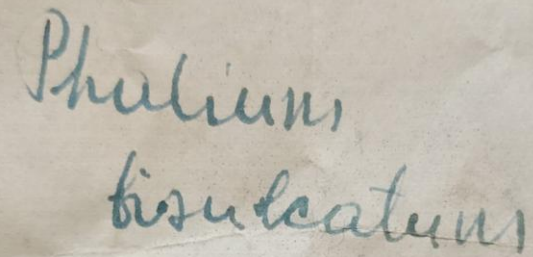 Phalium
bisulcatum